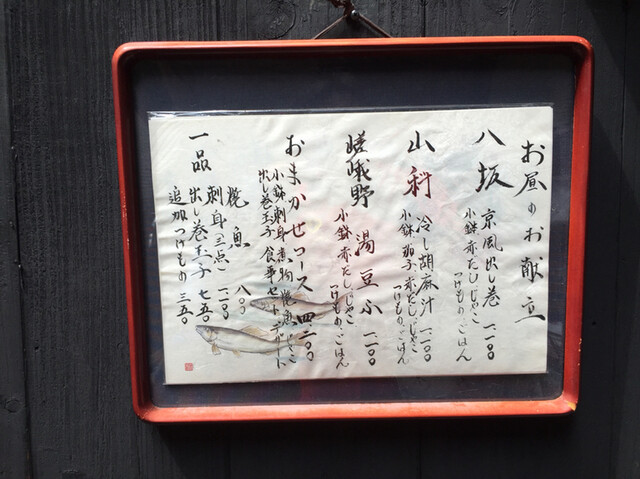 お昼のお献立
八坂 京風出し巻 一、一〇〇
小鉢 赤だし、じゃこ
つけもの、ごはん
山科 冷し胡麻汁 一、一〇〇
小鉢 茄子 赤だし、じゃこ
つけもの、ごはん
嵯峨野 湯豆ふ 一、一〇〇
小鉢 赤だし、じゃこ
つけもの、ごはん
おまかせコース 四、二〇〇
小鉢 刺身 煮物 焼魚 じゃこ
出し巻玉子 食事セット デザート
一品
焼魚 八〇〇
刺身三点 一、二〇〇
出し巻玉子 七五〇
追加つけもの 三五〇